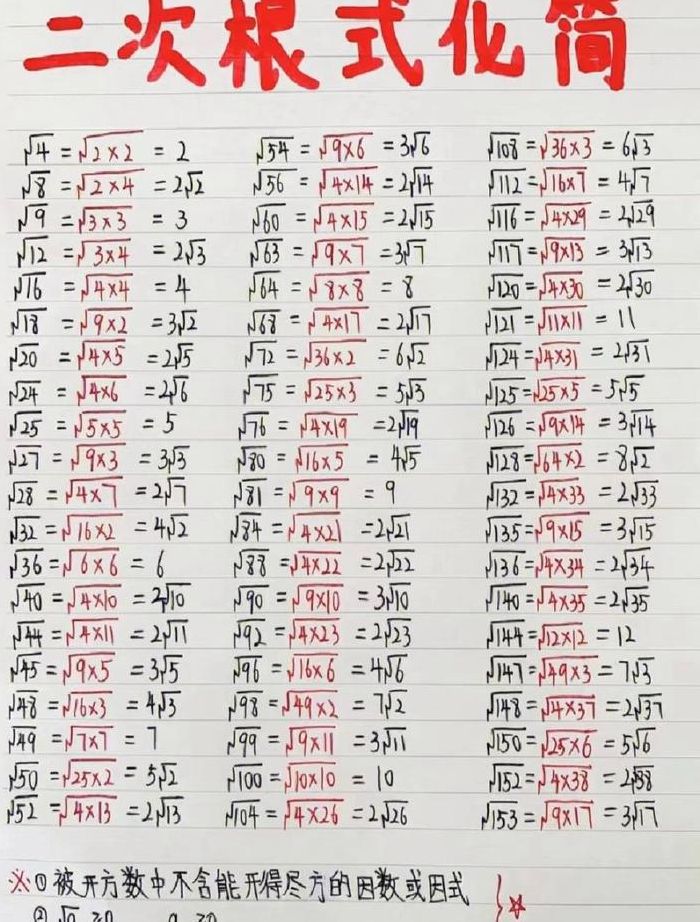 二次根式化简
√4 = √2×2 = 2
√8 = √2×4 = 2√2
√9 = √3×3 = 3
√12 = √3×4 = 2√3
√16 = √4×4 = 4
√18 = √9×2 = 3√2
√20 = √4×5 = 2√5
√24 = √4×6 = 2√6
√25 = √5×5 = 5
√27 = √9×3 = 3√3
√28 = √4×7 = 2√7
√32 = √16×2 = 4√2
√36 = √6×6 = 6
√40 = √4×10 = 2√10
√44 = √4×11 = 2√11
√45 = √9×5 = 3√5
√48 = √16×3 = 4√3
√49 = √7×7 = 7
√50 = √25×2 = 5√2
√52 = √4×13 = 2√13
√54 = √9×6 = 3√6
√56 = √4×14 = 2√14
√60 = √4×15 = 2√15
√63 = √9×7 = 3√7
√64 = √8×8 = 8
√68 = √4×17 = 2√17
√72 = √36×2 = 6√2
√75 = √25×3 = 5√3
√76 = √4×19 = 2√19
√80 = √16×5 = 4√5
√81 = √9×9 = 9
√84 = √4×21 = 2√21
√88 = √4×22 = 2√22
√90 = √9×10 = 3√10
√92 = √4×23 = 2√23
√96 = √16×6 = 4√6
√98 = √49×2 = 7√2
√99 = √9×11 = 3√11
√100 = √10×10 = 10
√104 = √4×26 = 2√26
√108 = √36×3 = 6√3
√112 = √16×7 = 4√7
√116 = √4×29 = 2√29
√117 = √9×13 = 3√13
√120 = √4×30 = 2√30
√121 = √11×11 = 11
√124 = √4×31 = 2√31
√125 = √25×5 = 5√5
√126 = √9×14 = 3√14
√128 = √64×2 = 8√2
√132 = √4×33 = 2√33
√135 = √9×15 = 3√15
√136 = √4×34 = 2√34
√140 = √4×35 = 2√35
√144 = √12×12 = 12
√147 = √49×3 = 7√3
√148 = √4×37 = 2√37
√150 = √25×6 = 5√6
√152 = √4×38 = 2√38
√153 = √9×17 = 3√17
※①被开方数中不含能开得尽方的因数或因式
② √a ≥0 a ≥0